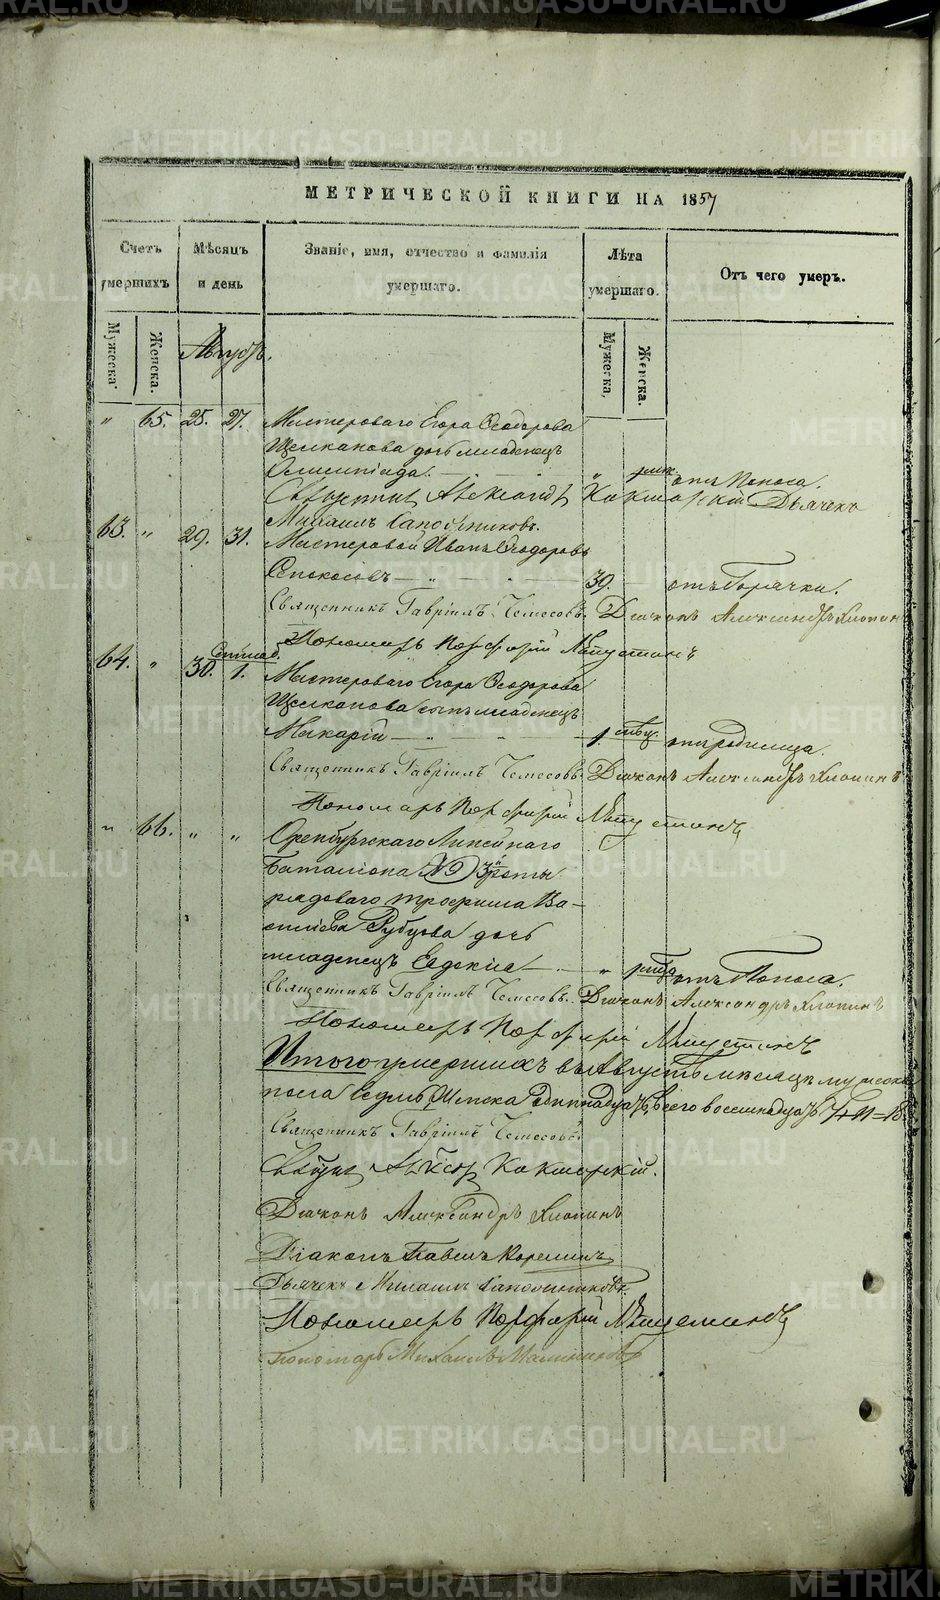 METRIKI.GASO-URAL.RU
МЕТРИЧЕСКОЙ КНИГИ НА 1857
Счетъ умершихъ
Мѣсяцъ и день
Званіе, имя, отчество и фамилія умершаго.
Лѣта умершаго.
Отъ чего умеръ.
Мужеска.
Женска.
Мужеска.
Женска.
Августъ.
" 65. 25. 27. Мастероваго Егора Ѳеодорова
Щелканова дочь младенецъ
Олимпіада. " отъ Поноса.
Священникъ Александръ Кокшарскій Дьячекъ
Михаилъ Сапожниковъ.
63. " 29. 31. Мастеровой Иванъ Ѳеодоровъ
39. отъ Горячки.
Священникъ Гавріилъ Діаконъ Александръ Хлопинъ
Пономарь Порфирій
64. " 30. 1. Мастероваго Егора Ѳеодорова
Щелканова сынъ младенецъ
Макарій 1. отъ родимца.
Священникъ Гавріилъ Діаконъ Александръ Хлопинъ
Пономарь Порфирій
" 66. " " Оренбургскаго Линейнаго
Баталіона роты
рядоваго Трофима Ва-
сильева Рубцова дочь
младенецъ Евдокія " отъ Поноса.
Священникъ Гавріилъ Діаконъ Александръ Хлопинъ
Пономарь Порфирій
Итого умершихъ въ Августѣ мѣсяцѣ мужска
пола седмь Женска одиннадцать, всего восемнадцать 7+11=18.
Священникъ Гавріилъ
Кокшарскій.
Діаконъ Александръ Хлопинъ
Діаконъ Павелъ
Дьячекъ Михаилъ Сапожниковъ.
Пономарь Порфирій
Пономарь Михаилъ